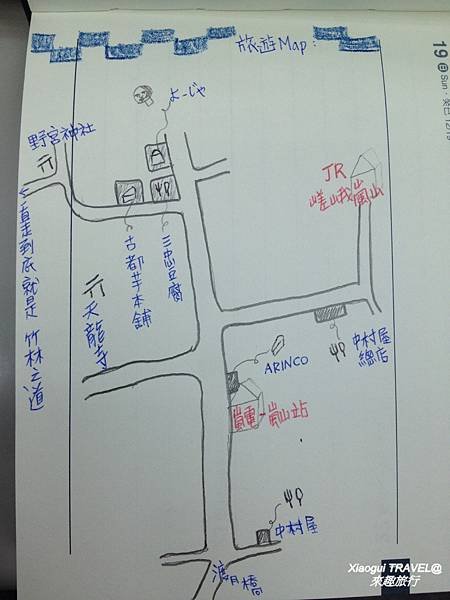 旅遊Map:
19 日 Sun
よーじゃ
野宮神社
JR
嵯峨嵐山
一直走到底就是 竹林之道
天龍寺
古都芋本舖
三忠豆腐
ARINCO
中村屋
總店
嵐電-嵐山站
中村屋
渡月橋
Xiaogui TRAVEL@
來趣旅行